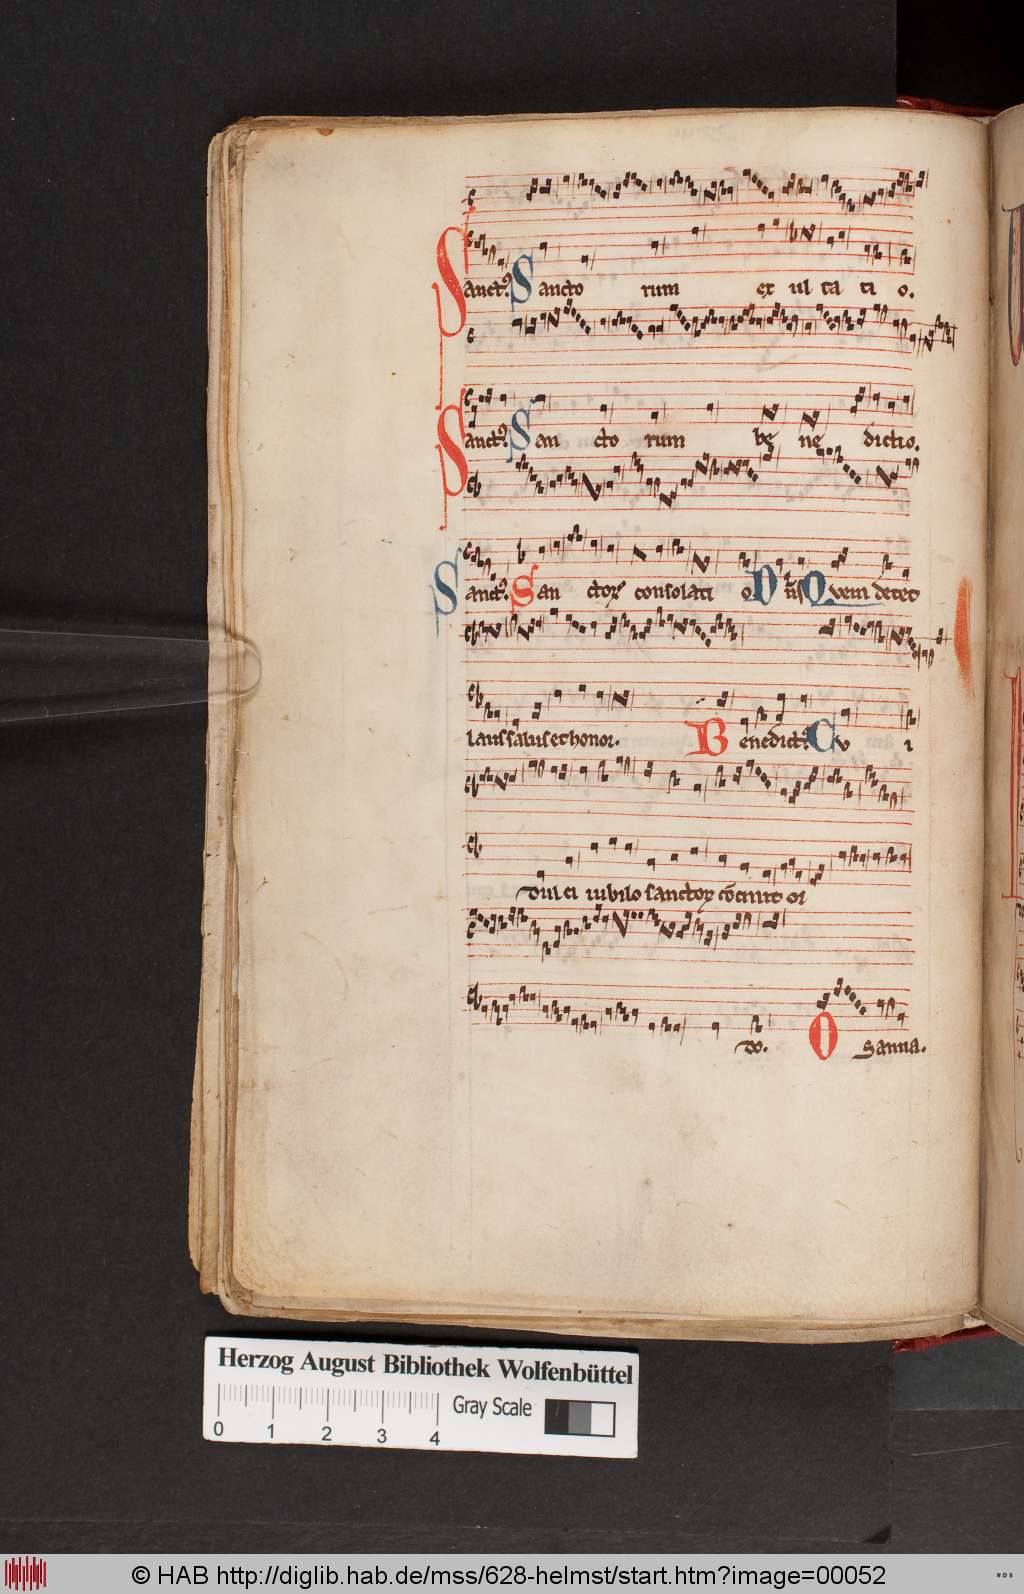 Sanctꝰ Sancto rum ex ul ta ti o.
Sanctꝰ San cto rum be ne dictio.
Sanctꝰ San ctoꝝ consolati o Dn̄s Quem decet
laus salus et honor. Benedictꝰ Cu i
dul ci iubilo sanctoꝝ cōcinit or
do. O sanna.
Herzog August Bibliothek Wolfenbüttel
Gray Scale
0 1 2 3 4
© HAB http://diglib.hab.de/mss/628-helmst/start.htm?image=00052